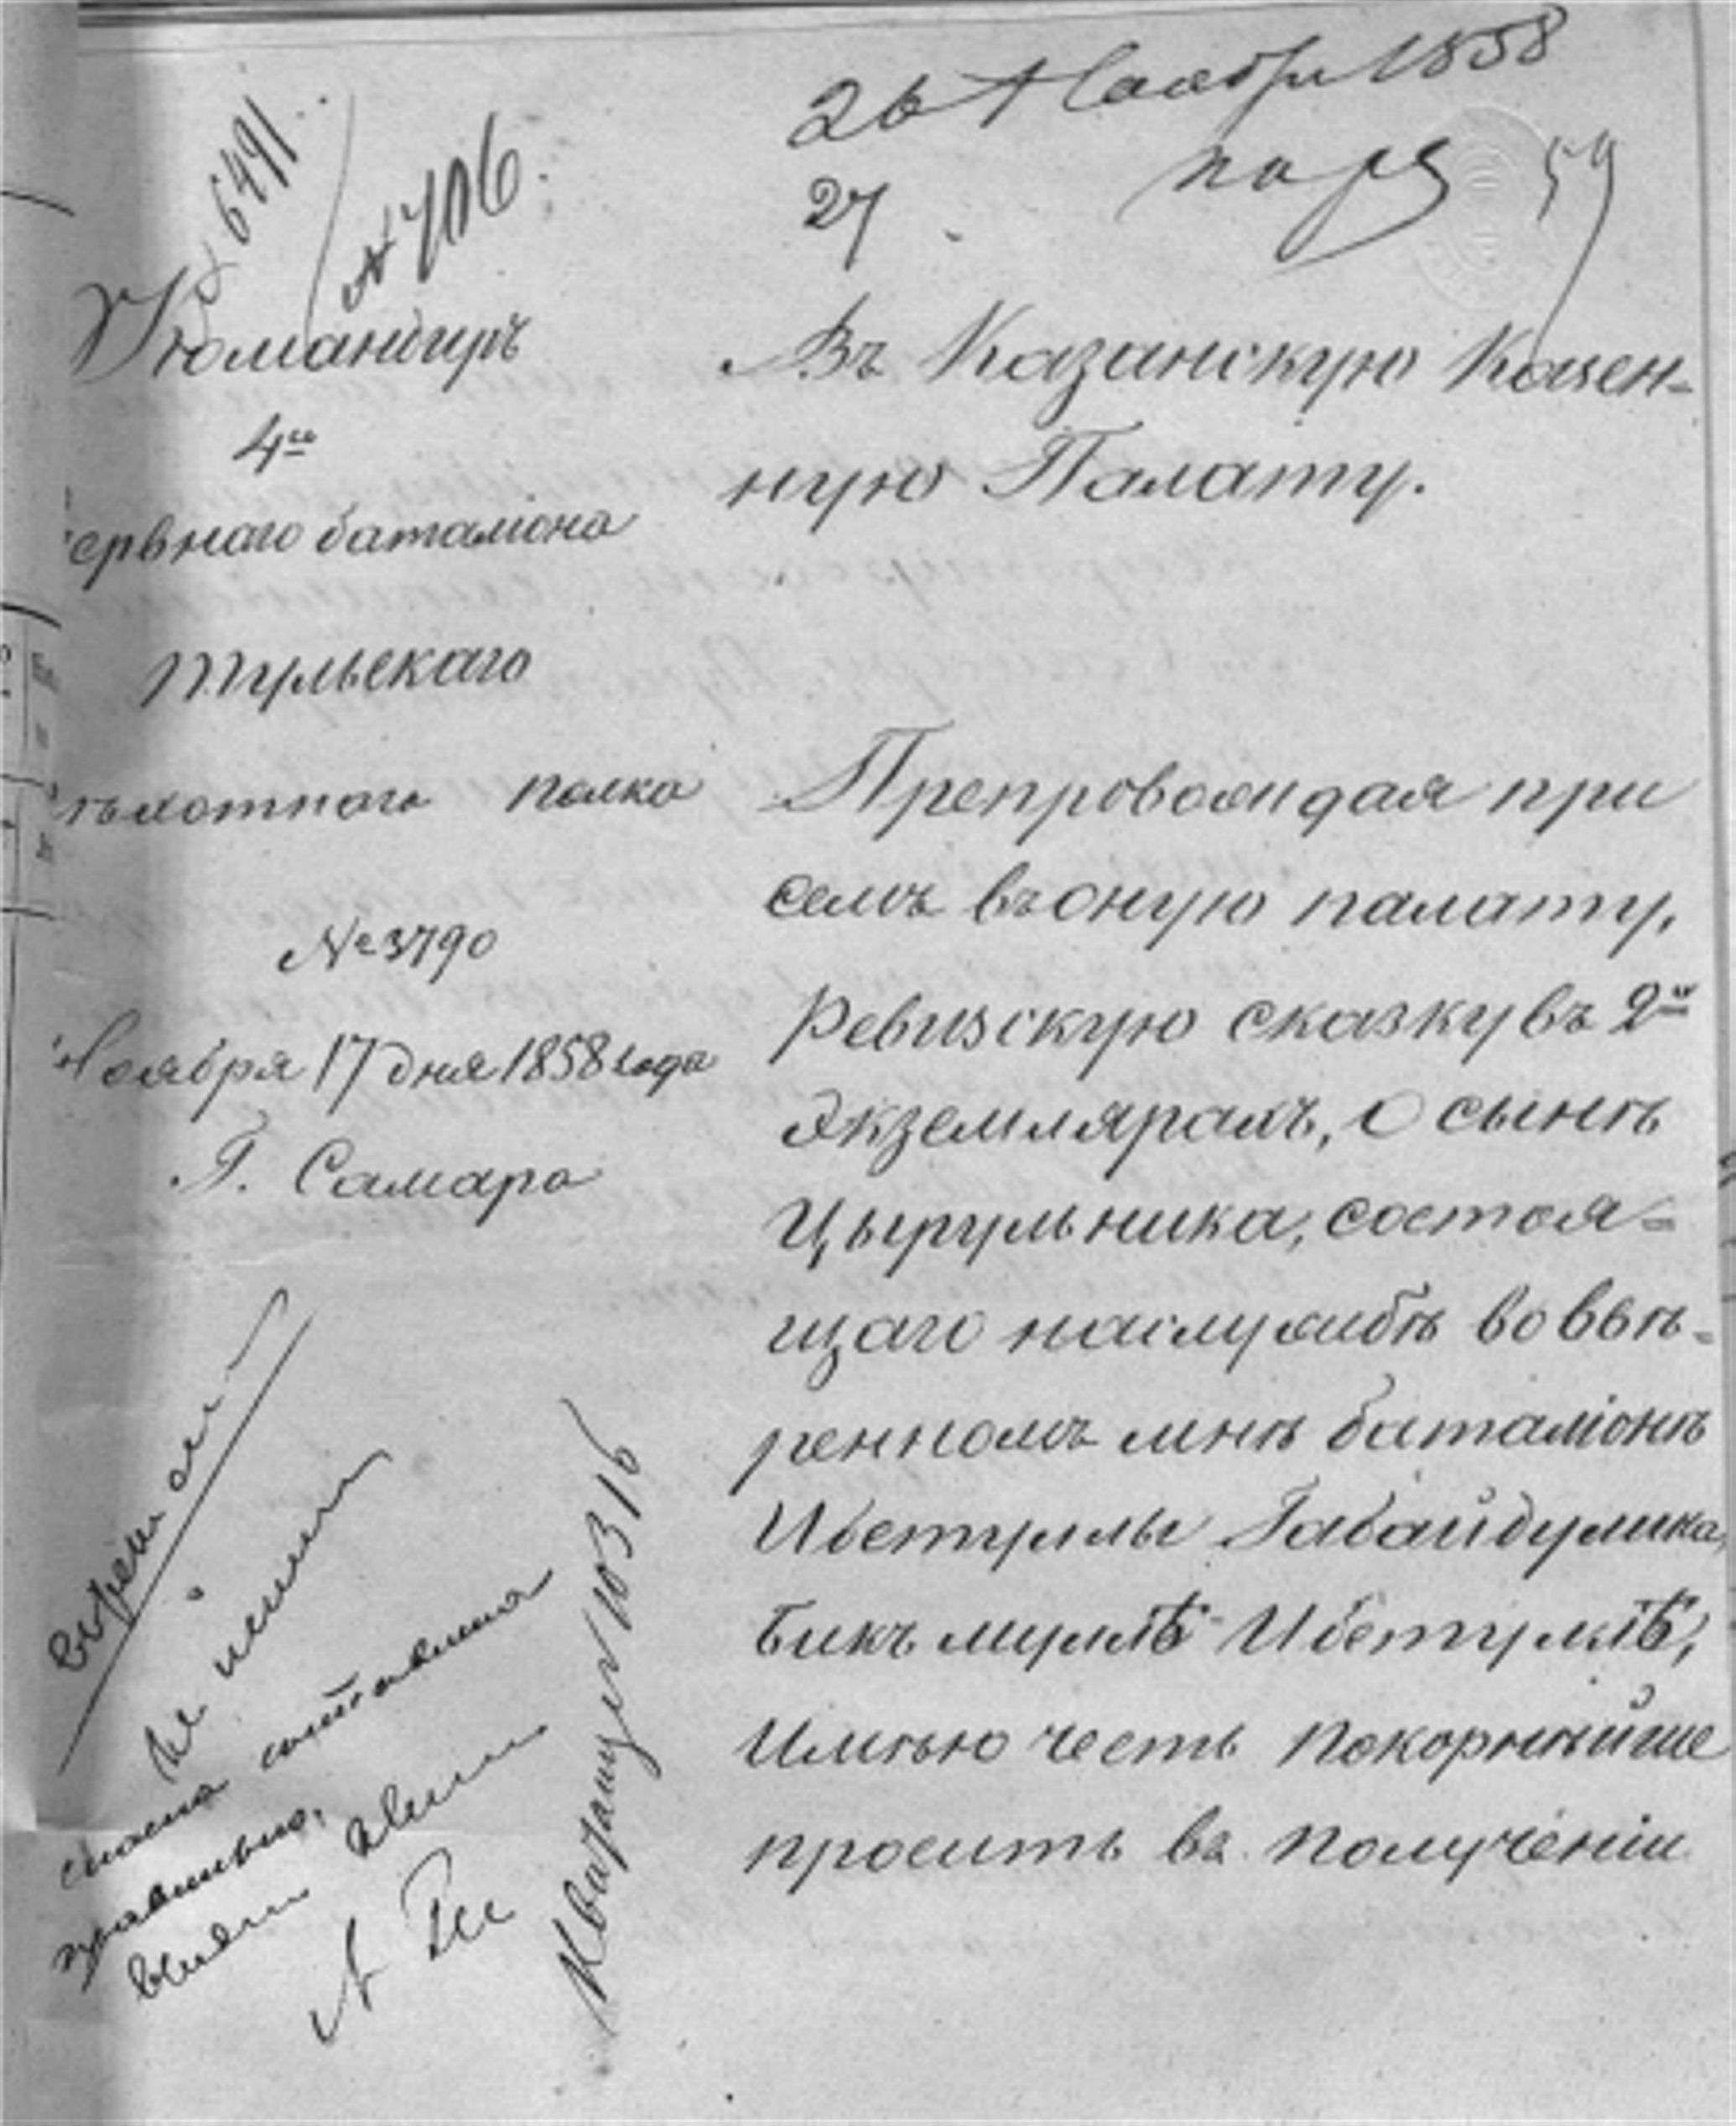 26 Ноября 1858
27
59
№ 6491.
№ 7106.
Командиръ
4го
ервнаго баталіона
Тульскаго
пѣхотнаго полка
№ 3790
Ноября 17 дня 1858 года
Г. Самара
Въ Казанскую Казен-
ную Палату.
Препровождая при
семъ въ оную палату,
Ревизскую сказку въ 2хъ
Экземлярахъ, о сынѣ
Цырульника, состоя=
щаго на службѣ во ввѣ-
ренномъ мнѣ баталіонѣ
Ибетуллы Габайдулина,
Бикъ муллѣ Ибетуллѣ,
Имѣю честь покорнѣйше
просить въ полученіи
не
составлена
правильно,